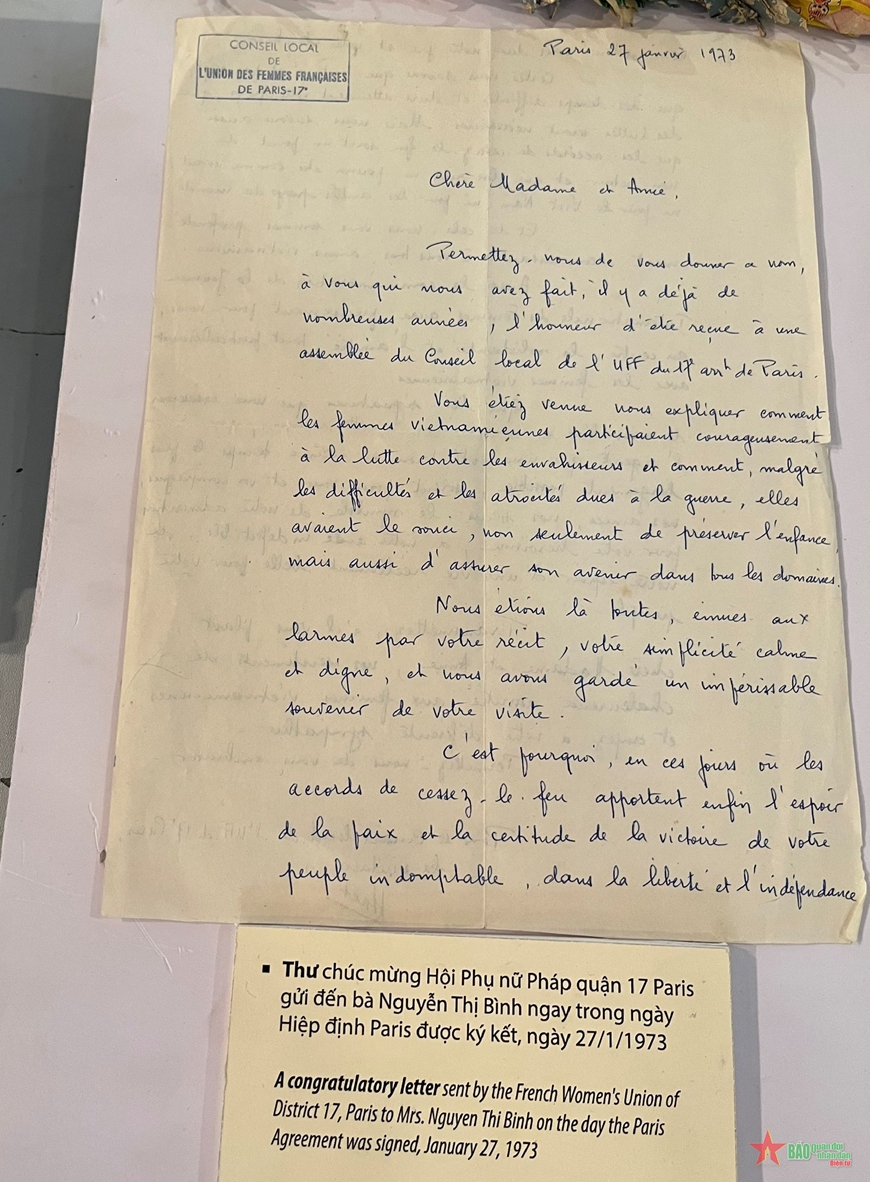 CONSEIL LOCAL
DE
L'UNION DES FEMMES FRANÇAISES
DE PARIS-17e
Paris 27 janvier 1973
Chère Madame et Amie,
Permettez-nous de vous donner ce nom,
à vous qui nous avez fait, il y a déjà de
nombreuses années, l'honneur d'être reçue à une
assemblée du Conseil local de l'UFF du 17e arrt de Paris.
Vous étiez venue nous expliquer comment
les femmes vietnamiennes participaient courageusement
à la lutte contre les envahisseurs et comment, malgré
les difficultés et les atrocités dues à la guerre, elles
avaient le souci, non seulement de préserver l'enfance,
mais aussi d'assurer son avenir dans tous les domaines.
Nous étions là toutes, émues aux
larmes par votre récit, votre simplicité calme
et digne, et nous avons gardé un impérissable
souvenir de votre visite.
C'est pourquoi, en ces jours où les
accords de cessez-le-feu apportent enfin l'espoir
de la paix et la certitude de la victoire de votre
peuple indomptable, dans la liberté et l'indépendance
▪ Thư chúc mừng Hội Phụ nữ Pháp quận 17 Paris
gửi đến bà Nguyễn Thị Bình ngay trong ngày
Hiệp định Paris được ký kết, ngày 27/1/1973
A congratulatory letter sent by the French Women's Union of
District 17, Paris to Mrs. Nguyen Thi Binh on the day the Paris
Agreement was signed, January 27, 1973
BÁO Quân đội
nhân dân
Điện tử